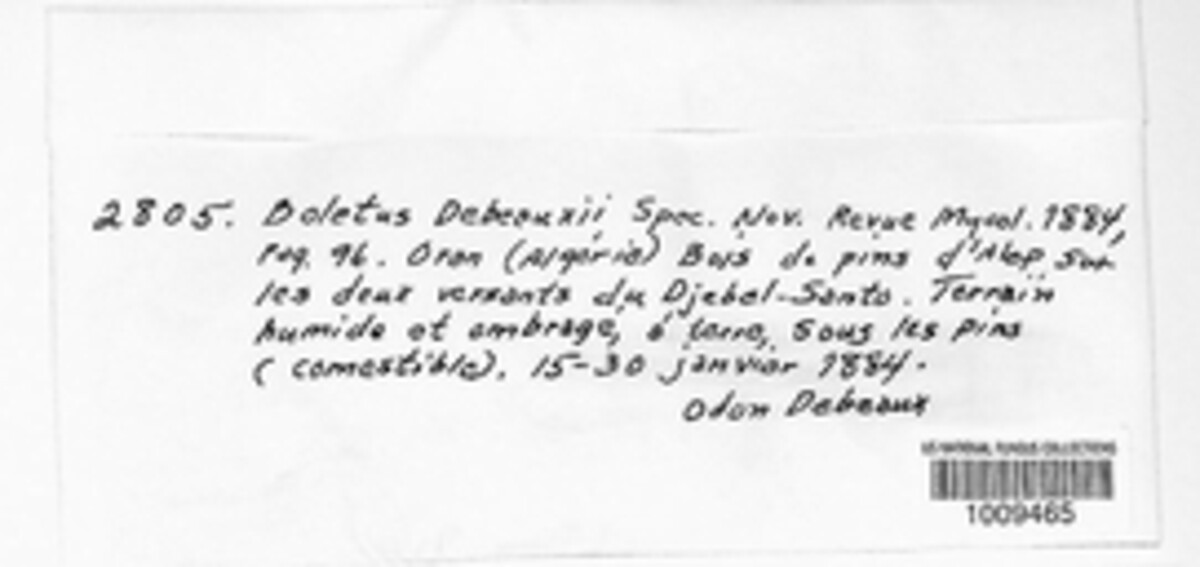 2805. Boletus Debeauxii, Spec. Nov. Revue Mycol. 1884,
Pag. 96. Oran (Algérie) Bois de pins d'Alep sur
les deux versants du Djebel-Santo. Terrain
humide et ombragé, à terre, sous les pins
(comestible). 15-30 janvier 1884.
Odon Debeaux
US NATIONAL FUNGUS COLLECTIONS
1009465